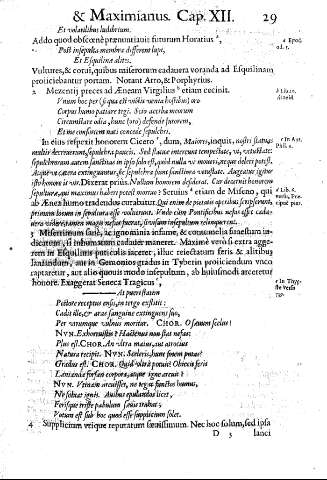 & Maximianus. Cap. XII. 29
Et volatilibus luddorum.
Addo quod obscœnè prænuntiavit futurum Horatius
a Epod.
od. 5.
Post insepulta membra different lupi,
Et Esquilinæ alites.
Vultures, & corui, quibus miserorum cadauera voranda ad Esquilinam
proliciebantur portam. Notant Acro, & Porphyrius.
2 Mezentij preces ad Æneam Virgilius b etiam cecinit.
Vnum hoc per (si qua est victis venia hostibus) oro
Corpus humo patiare tegi. Scio acerba meorum
Circumstare odia, hunc (oro) defende furorem,
Et me consortem nati concede sepulchro.
In eius respexit honorem Cicero c, dum, Maiores, inquit, nostri statuas
c In Ant.
Phil. 9.
multis decreuerunt, sepulchra paucis. Sed statuæ intereunt tempestate, vi, vetustate
sepulchrorum autem sanctitas in ipso solo est, quod nulla vi moueri, neque deleri potest.
Atque vt cætera extinguuntur, sic sepulchra sunt sanctiora vetustate. Augeatur igitur
isto honore is vir. Dixerat prius. Nullum honorem desiderat. Cur decernis honorem
sepulturæ, quo maximus haberi potest mortuo? Seruius d etiam de Miseno, qui
d Lib. 6.
ab Ænea humo tradendus curabatur. Qui enim de pietatis operibus scripserunt,
primum locum in sepultura esse voluerunt. Vnde cum Pontificibus nefas esset cadauer
3 Miserrimum fuit, ac ignominia infame, & contumelia funestum indicatum,
si inhumatum cadauer maneret. Maximè verò si extra aggerem
in Esquilinum puticulis iaceret, illuc reiectatum feris & alitibus
laniandum, aut in Gemonios gradus in Tyberin proiiciendum vnco
raptaretur, aut alio quouis modo insepultum, ab huiusmodi arceretur
honore. Exaggerat Seneca Tragicus e,
Pectore receptus ensis, in tergo exstitit:
Per vtrumque vulnus moritur. CHOR. O sæuum scelus!
NVN. Exhorruistis? Hactenus non stat nefas:
Plus est. CHOR. An vltra maius, aut atrocius
Natura recipit. NVN. Sceleris, hunc finem putas?
Gradus est. CHOR. Quid vltrà potuit? Obiecit feris
Lanianda forsan corpora, atque igne arcuit?
NVN. Vtinam arcuisset, ne tegat functos humus,
Ne soluat ignis. Auibus epulandos licet,
Ferisque triste pabulum sæuis trahat;
Votum est sub hoc quod esse supplicium solet.
4 Supplicium vtique reputatum sæuissimum. Nec hoc solum, sed ipsa
D 3 lanci